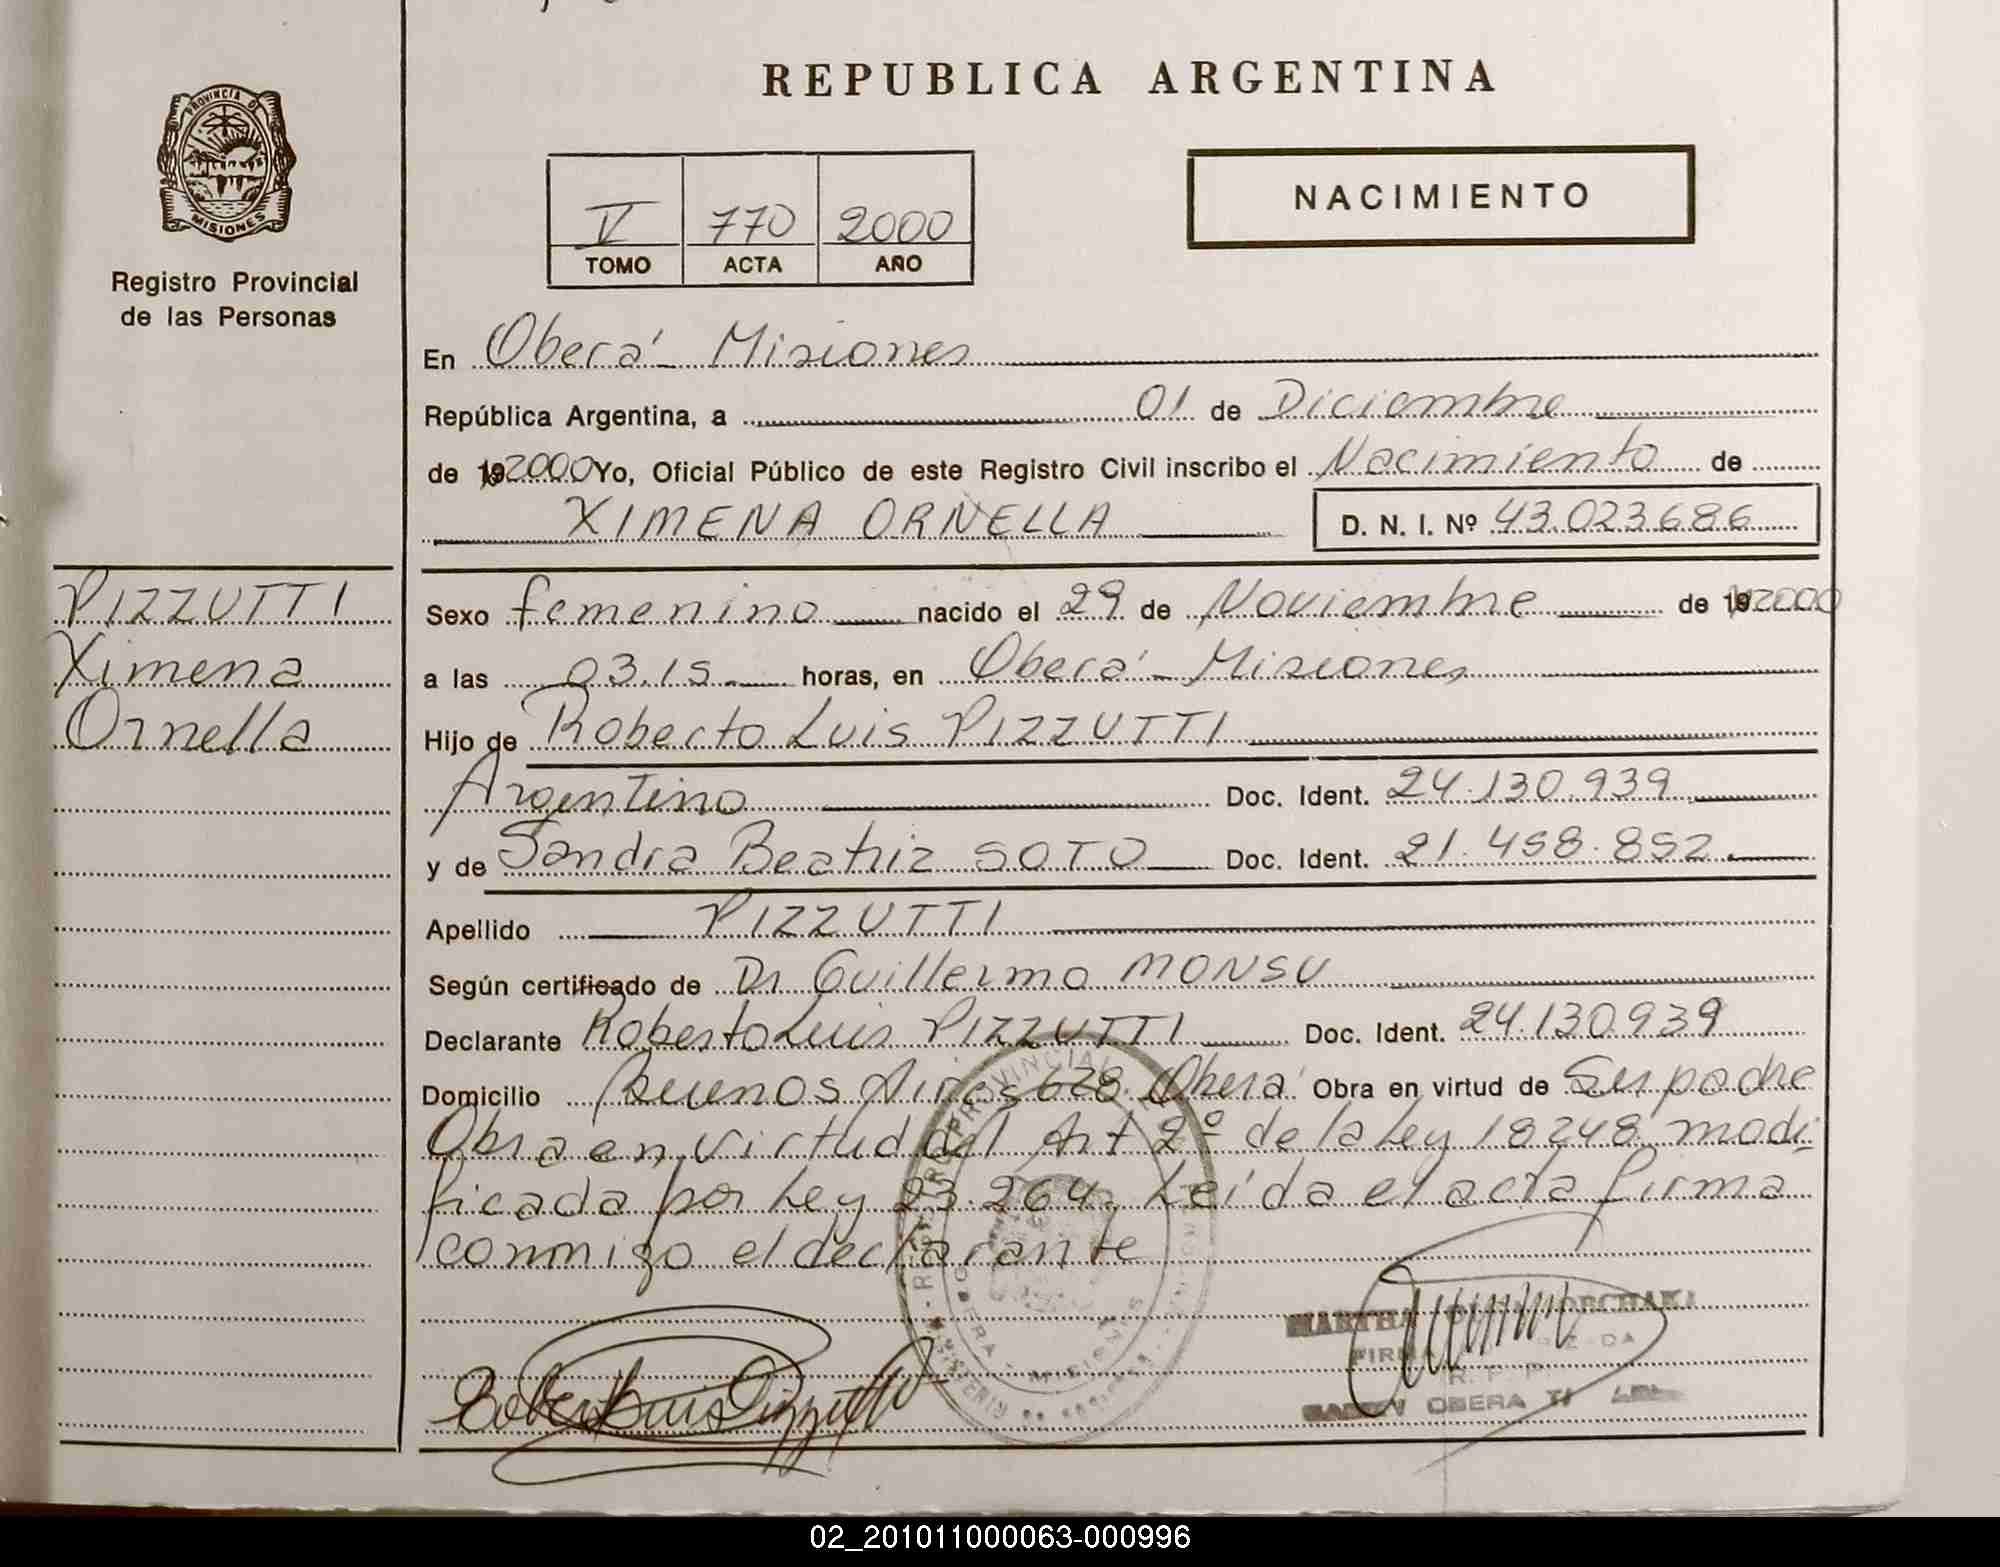 REPUBLICA ARGENTINA
PROVINCIA DE
MISIONES
Registro Provincial
de las Personas
NACIMIENTO
V 770 2000
TOMO ACTA AÑO
En Oberá - Misiones
República Argentina, a 01 de Diciembre
de 192000 Yo, Oficial Público de este Registro Civil inscribo el Nacimiento de
XIMENA ORNELLA D. N. I. Nº 43.023686
PIZZUTTI
Ximena
Ornella
Sexo femenino nacido el 29 de Noviembre de 192000
a las 03.15 horas, en Oberá - Misiones
Hijo de Roberto Luis PIZZUTTI
Argentino Doc. Ident. 24.130.939
y de Sandra Beatriz SOTO Doc. Ident. 21.458.852
Apellido PIZZUTTI
Según certificado de Dr Guillermo MONSU
Declarante Roberto Luis PIZZUTTI Doc. Ident. 24.130.939
Domicilio Buenos Aires 628. Oberá Obra en virtud de Ser padre
Obra en virtud del Art 2º de la Ley 18248 modi-
ficada por Ley 23.264. Leída el acta firma
conmigo el declarante
Roberto Luis Pizzutti
MARTHA
OBERA
02_201011000063-000996